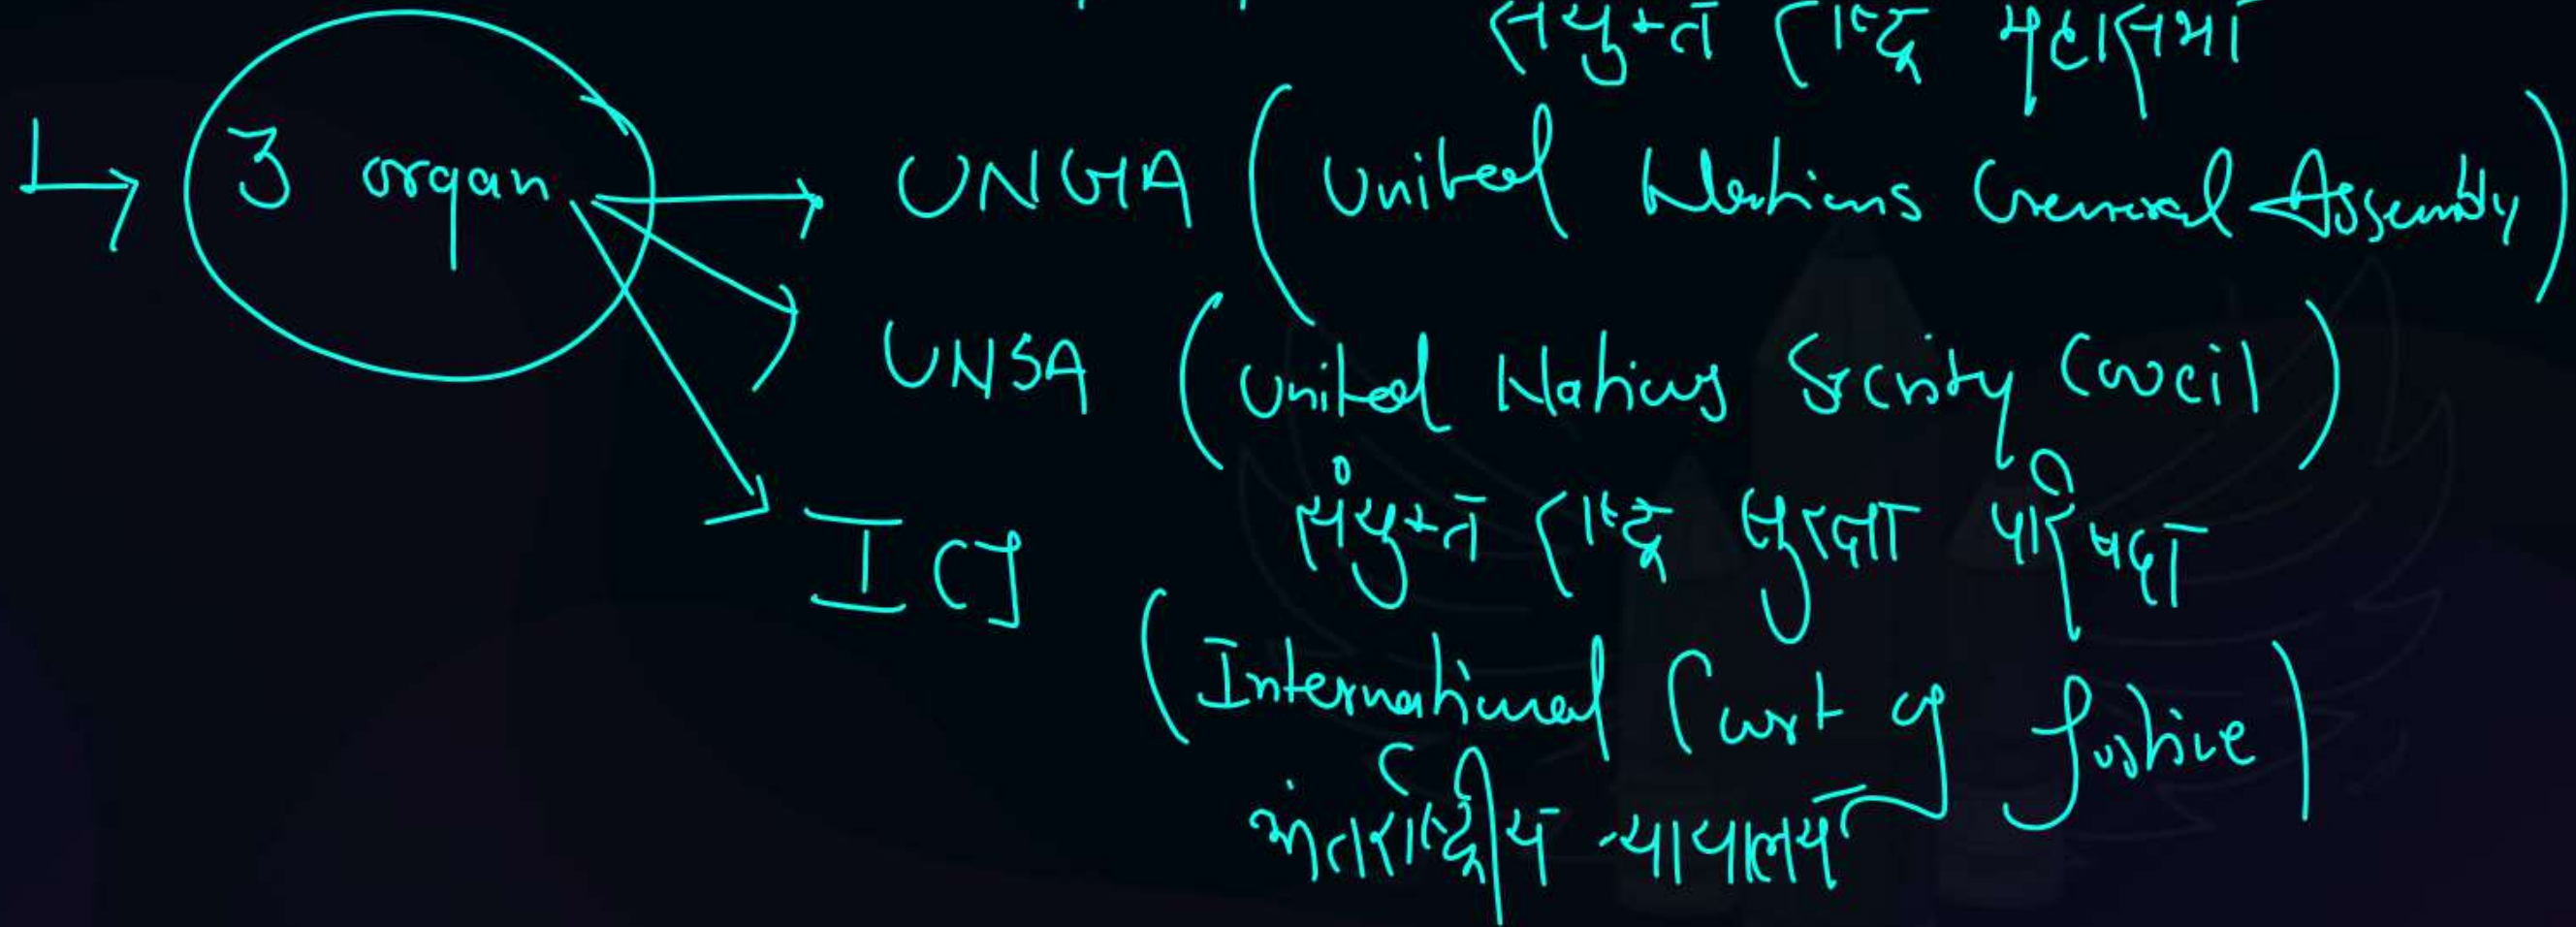 संयुक्त राष्ट्र महासभा
3 organ UNGA (United Nations General Assembly)
UNSA (United Nations Security Council)
संयुक्त राष्ट्र सुरक्षा परिषद
ICJ
(International Court of Justice)
अंतर्राष्ट्रीय न्यायालय